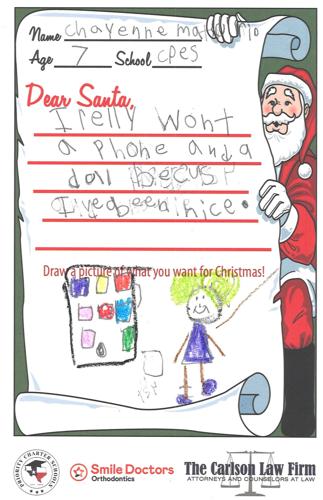 Name chayenne
Age 7 School CPES
Dear Santa,
I relly Wont
a phone and a
doll becus
I'vebeen nice.
Draw a picture of what you want for Christmas!
PRIORITY CHARTER SCHOOLS
Smile Doctors
Orthodontics
The Carlson Law Firm
ATTORNEYS AND COUNSELORS AT LAW